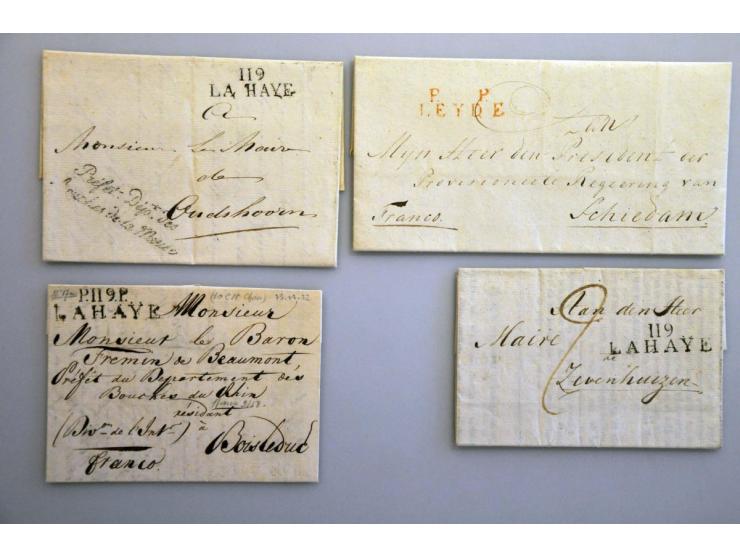 119
LA HAYE
a
Monsieur le Maire
de
Oudshoven
Préfet Dépt. des
Bouches de la Meuse
P. P.
LEYDE
Aan
Myn Heer den President der
Provisioneele Regeering van
Franco. Schiedam
P.119.P.
LAHAYE
Monsieur
Monsieur le Baron
Fremin de Beaumont
Préfet du Département des
Bouches du Rhin
résidant
à
Boisleduc
franco.
Aan den Heer
Maire
119
LAHAYE
de
Zevenhuizen